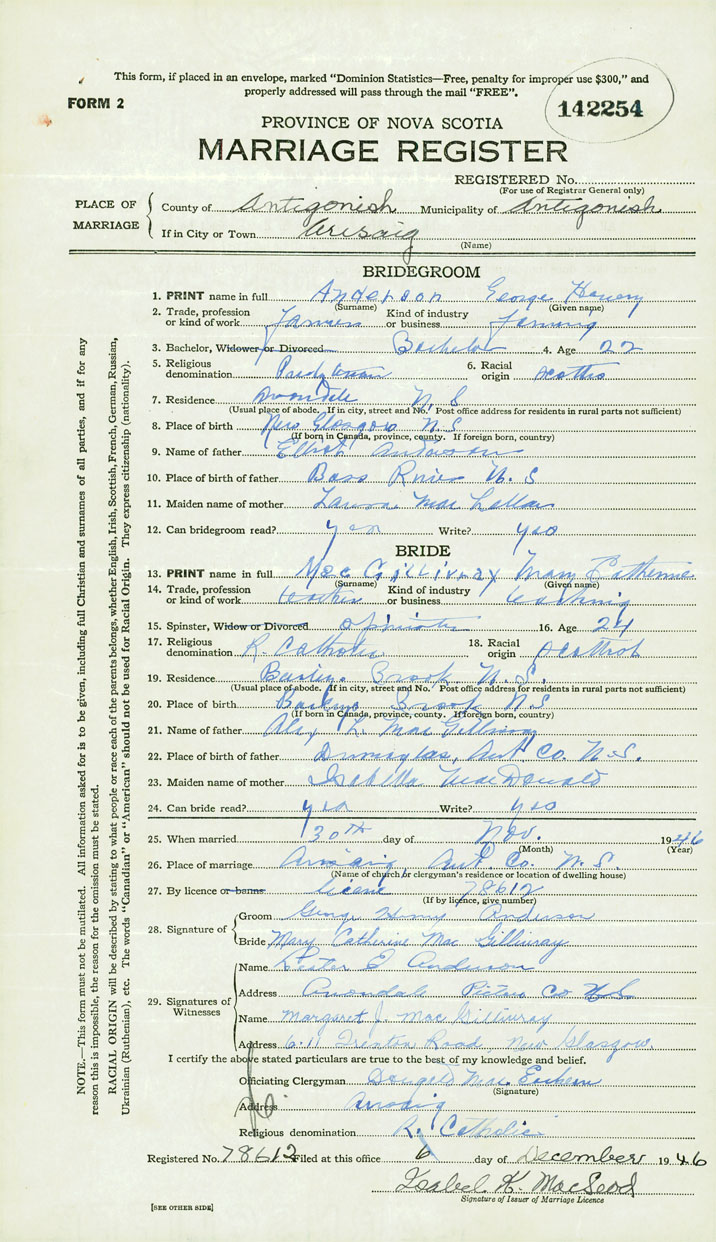 This form, if placed in an envelope, marked "Dominion Statistics—Free, penalty for improper use $300," and
properly addressed will pass through the mail "FREE".
FORM 2
142254
PROVINCE OF NOVA SCOTIA
MARRIAGE REGISTER
REGISTERED No.
(For use of Registrar General only)
PLACE OF MARRIAGE
County of Antigonish Municipality of Antigonish
If in City or Town Arisaig
(Name)
BRIDEGROOM
1. PRINT name in full Anderson George Henery
(Surname) (Given name)
2. Trade, profession or kind of work Farmer Kind of industry or business Farming
3. Bachelor, Widower or Divorced Bachelor 4. Age 22
5. Religious denomination 6. Racial origin
7. Residence Avondale N.S
(Usual place of abode. If in city, street and No. Post office address for residents in rural parts not sufficient)
8. Place of birth New Glasgow N.S
(If born in Canada, province, county. If foreign born, country)
9. Name of father Anderson
10. Place of birth of father Bass River N.S
11. Maiden name of mother Mac Lellan
12. Can bridegroom read? yes Write? yes
BRIDE
13. PRINT name in full Mac Gillivray Mary Catherine
(Surname) (Given name)
14. Trade, profession or kind of work teacher Kind of industry or business teaching
15. Spinster, Widow or Divorced spinster 16. Age 24
17. Religious denomination R. Catholic 18. Racial origin
19. Residence Baileys Brook N.S.
(Usual place of abode. If in city, street and No. Post office address for residents in rural parts not sufficient)
20. Place of birth Baileys Brook N.S
(If born in Canada, province, county. If foreign born, country)
21. Name of father Alex L. Mac Gillivray
22. Place of birth of father Dunmaglas, Ant Co. N.S.
23. Maiden name of mother Isabella MacDonald
24. Can bride read? yes Write? yes
25. When married 30TH day of Nov. 1946
(Month) (Year)
26. Place of marriage Arisaig Ant. Co. N.S.
(Name of church or clergyman's residence or location of dwelling house)
27. By licence or banns license 78612
(If by licence, give number)
28. Signature of
Groom George Henry Anderson
Bride Mary Catherine Mac Gillivray
29. Signatures of Witnesses
Name Lester E Anderson
Address Avondale Pictou Co N.S.
Name Margaret J. Mac Gillivray
Address Trenton Road New Glasgow.
I certify the above stated particulars are true to the best of my knowledge and belief.
Officiating Clergyman Mac Eachern
(Signature)
Address Arisaig
Religious denomination R. Catholic
Registered No. 78612 Filed at this office 6 day of December 1946
Isabel K. MacLeod
Signature of Issuer of Marriage Licence
[SEE OTHER SIDE]
NOTE.—This form must not be mutilated. All information asked for is to be given, including full Christian and surnames of all parties, and if for any
reason this is impossible, the reason for the omission must be stated.
RACIAL ORIGIN will be described by stating to what people or race each of the parents belongs, whether English, Irish, Scottish, French, German, Russian,
Ukrainian (Ruthenian), etc. The words "Canadian" or "American" should not be used for Racial Origin. They express citizenship (nationality).